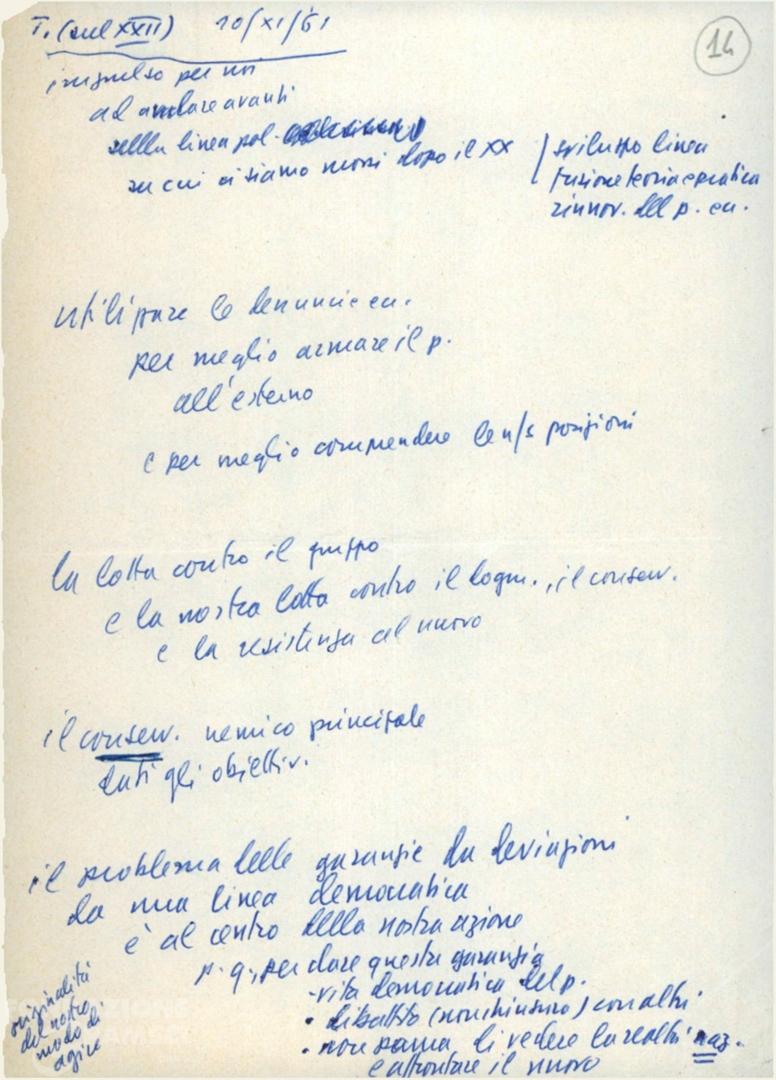 T. (sul XXII) 10/XI/61
14
impulso per noi
ad andare avanti
sulla linea pol.
su cui ci siamo mossi dopo il XX
sviluppo linea
fusione teoria e pratica
rinnov. del p. ecc.
utilizzare le denuncie ecc.
per meglio armare il p.
all'esterno
e per meglio comprendere le n/s posizioni
la lotta contro il gruppo
e la nostra lotta contro il dogm., il conserv.
e la resistenza al nuovo
il conserv. nemico principale
dati gli obiettiv.
il problema delle garanzie da deviazioni
da una linea democratica
è al centro della nostra azione
p. q. per dare questa garanzia
- vita democratica del p.
• dibattito (non chiusura) con altri
• non di vedere la realtà naz.
e affrontare il nuovo
originalità
del nostro
modo di
agire
FONDAZIONE
GRAMSCI